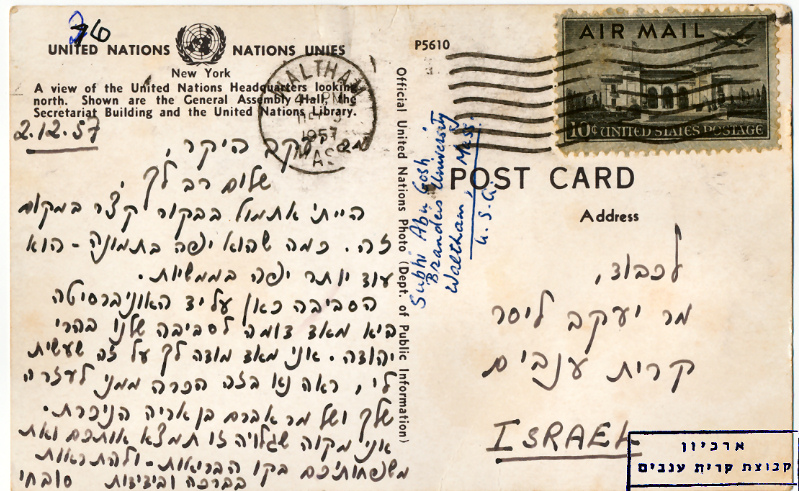 26
UNITED NATIONS NATIONS UNIES
New York
A view of the United Nations Headquarters looking
north. Shown are the General Assembly Hall, the
Secretariat Building and the United Nations Library.
2.12.57
מר יעקב היקר,
שלום רב לך,
הייתי אתמול בבקור קצר במקום
זה. כמה שהוא יפה בתמונה - הוא
עוד יותר יפה בממשיות.
הסביבה כאן על יד האוניברסיטה
היא מאד דומה לסביבה שלנו בהרי
יהודה. אני מאד מודה לך על זה שעשית
לי, ראה נא בזה הכרה ממני לעזרה
שלך ושל מר אברם בן אריה הניכרת.
אני מקוה שגלויה זו תמצא אותכם ואת
משפחותיכם בקו הבריאות - ולהתראות
בברכה ובידידות סובחי
P5610
Official United Nations Photo (Dept. of Public Information)
WALTHAM
1957
MASS.
AIR MAIL
10¢ UNITED STATES POSTAGE
Subhi Abu Gosh
Brandeis University
Waltham, Mass.
U.S.A.
POST CARD
Address
לכבוד,
מר יעקב ליסר
קרית ענבים
ISRAEL
ארכיון
קבוצת קרית ענבים